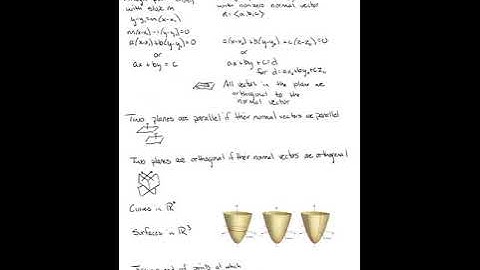 with slope m
y-y₁=m(x-x₁)
a(x-x₀)+b(y-y₀)=0
or
ax+by=c
with nonzero normal vector
n=<a,b,c>
a(x-x₀)+b(y-y₀)+c(z-z₀)=0
or
ax+by+cz=d
for d=ax₀+by₀+cz₀
All vectors in the plane are
orthogonal to the
normal vector
Two planes are parallel if their normal vectors are parallel
Two planes are orthogonal if their normal vectors are orthogonal
Curves in ℝ²
Surfaces in ℝ³